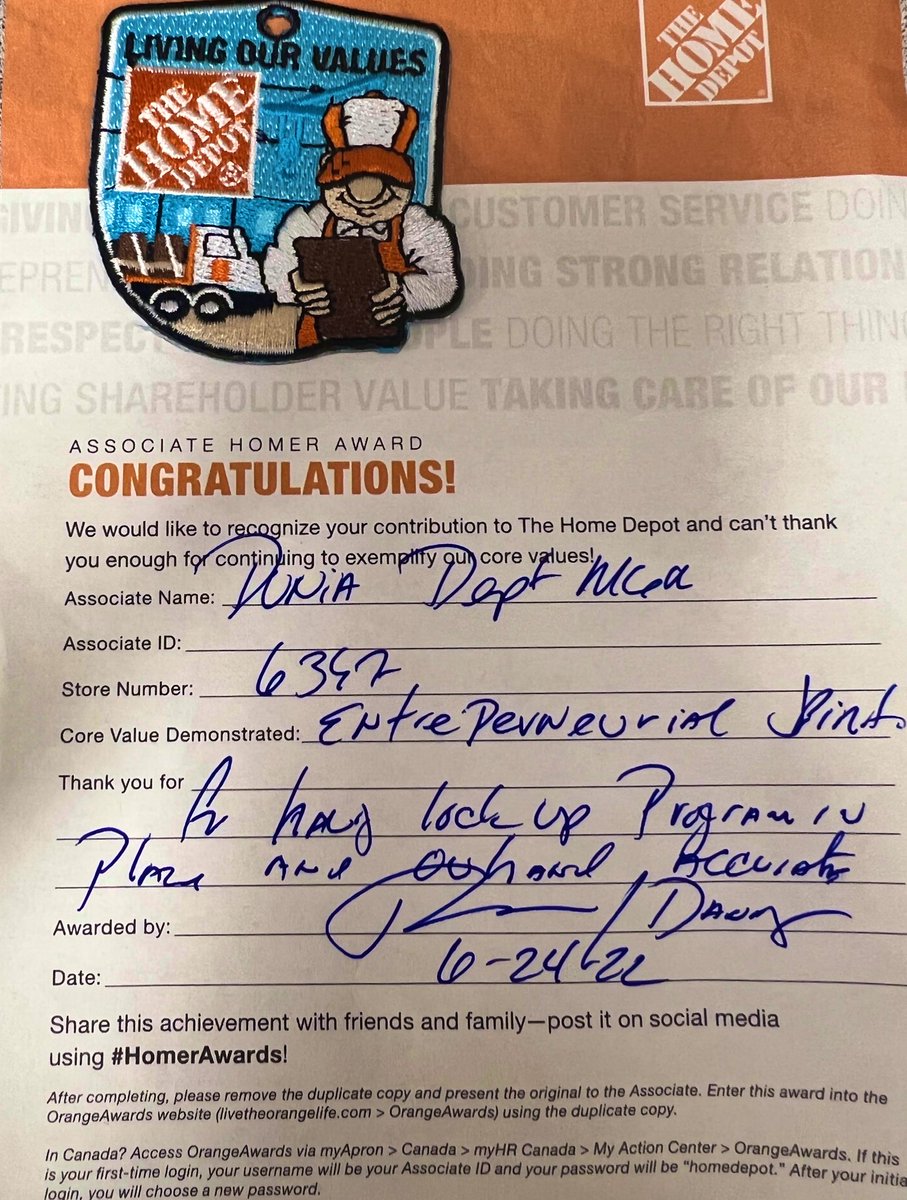 LIVING OUR VALUES
THE
HOME
DEPOT
THE
HOME
DEPOT
GIVIN CUSTOMER SERVICE DOIN
EPREN DING STRONG RELATION
RESPECT PLE DOING THE RIGHT THING
ING SHAREHOLDER VALUE TAKING CARE OF OUR
ASSOCIATE HOMER AWARD
CONGRATULATIONS!
We would like to recognize your contribution to The Home Depot and can't thank
you enough for continuing to exemplify our core values!
Associate Name: Dunia Dept
Associate ID:
Store Number:
Core Value Demonstrated: Entrepevneurial Spirit.
Thank you for
for lock up Program in
Place and onhand Accurate
Awarded by:
Date: 6-24-22
Share this achievement with friends and family—post it on social media
using #HomerAwards!
After completing, please remove the duplicate copy and present the original to the Associate. Enter this award into the
OrangeAwards website (livetheorangelife.com > OrangeAwards) using the duplicate copy.
In Canada? Access OrangeAwards via myApron > Canada > myHR Canada > My Action Center > OrangeAwards. If this
is your first-time login, your username will be your Associate ID and your password will be "homedepot." After your initia
login, you will choose a new password.